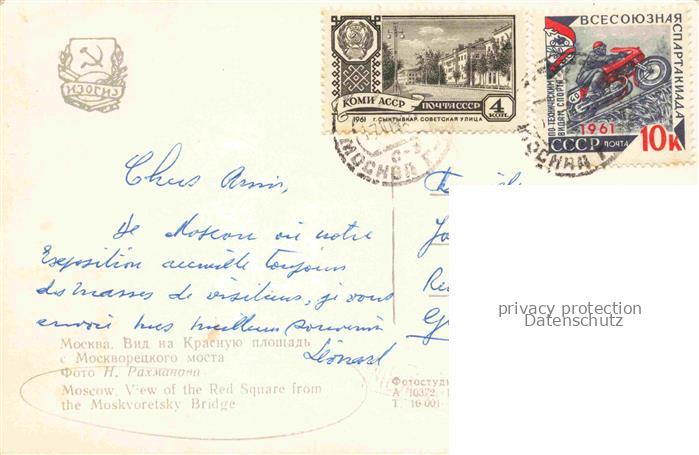 ИЗОГИЗ
КОМИ АССР ПОЧТА СССР 4 КОП.
1961 Г. СЫКТЫВКАР. СОВЕТСКАЯ УЛИЦА
ВСЕСОЮЗНАЯ СПАРТАКИАДА
ПО ТЕХНИЧЕСКИМ ВИДАМ СПОРТА
1961
СССР ПОЧТА 10К
МОСКВА
МОСКВА
Chers Amis,
De Moscou où notre
Exposition accueille toujours
des masses de visiteurs, je vous
envoie mes meilleurs souvenirs
Léonard
Москва. Вид на Красную площадь
с Москворецкого моста
Фото Н. Рахманова
Moscow. View of the Red Square from
the Moskvoretsky Bridge
Фотостуди
А 10372.
Т. 10 001-
privacy protection
Datenschutz